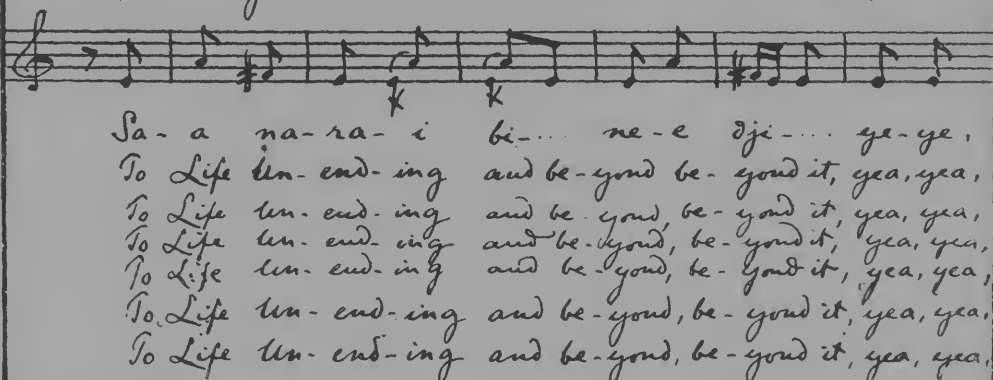 Sa- a na-ra- i bi-.... ne-e dji-.... ye-ye,
To Life Un- end- ing and be-yond be- yond it, yea, yea,
To Life Un- end- ing and be-yond, be- yond it, yea, yea,
To Life Un- end- ing and be-yond, be- yond it, yea, yea,
To Life Un- end- ing and be-yond, be- yond it, yea, yea,
To Life Un- end-ing and be-yond, be- yond it, yea, yea,
To Life Un- end-ing and be-yond, be- yond it, yea, yea,